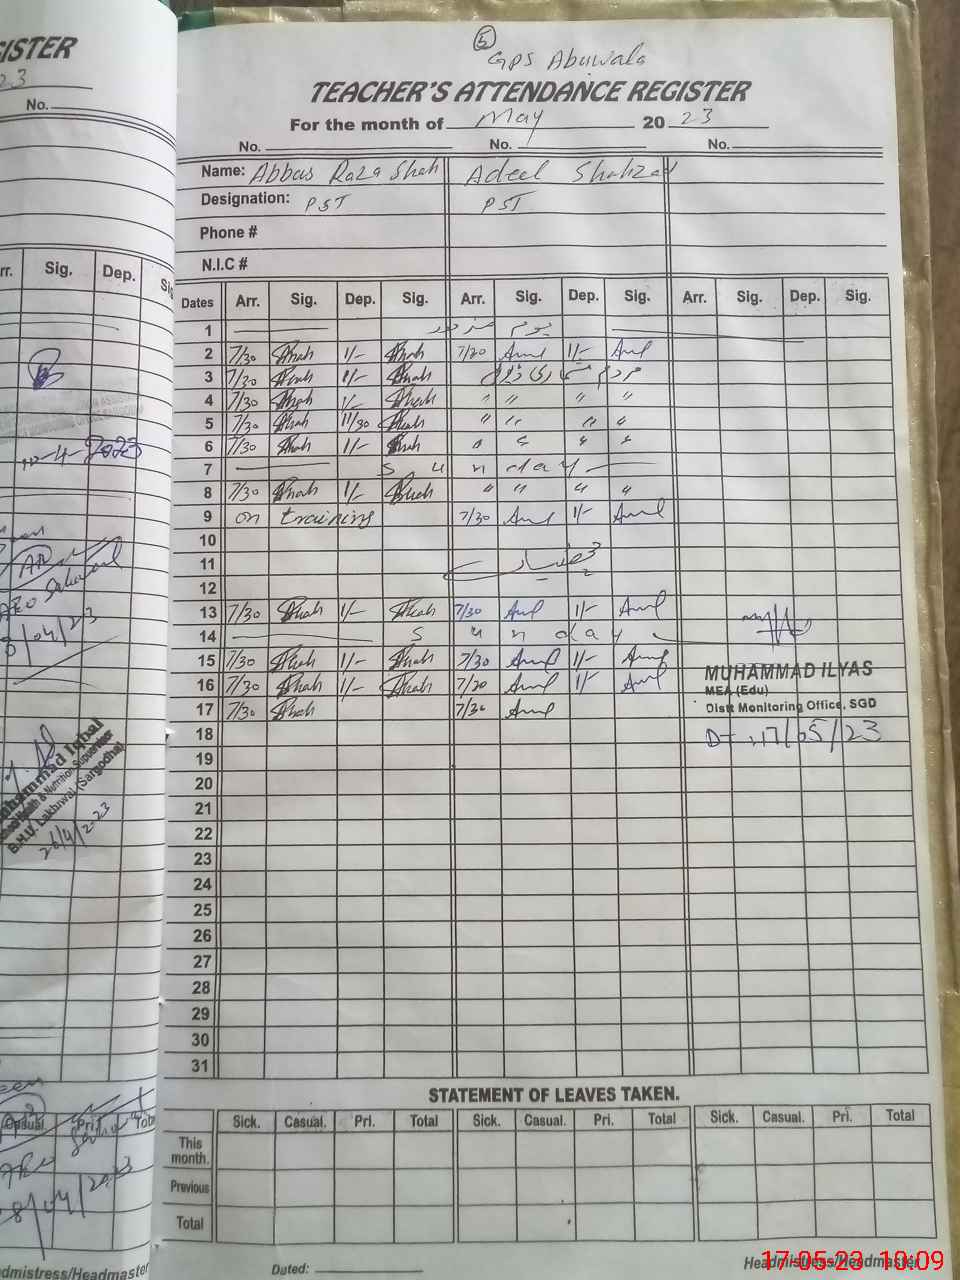 GISTER
23
No.
rr. Sig. Dep. Sig
10-4-2023
Muhammad Iqbal
School Health & Nutrition Supervisor
B.H.U. Lakhiwal (Sargodha)
26/4/2023
Casual. Pri. Total
admistress/Headmaster
5
GPS Abuwala
TEACHER'S ATTENDANCE REGISTER
For the month of May 2023
No. No. No.
Name: Abbas Raza Shah Adeel Shahzad
Designation: PST PST
Phone #
N.I.C #
Dates Arr. Sig. Dep. Sig. Arr. Sig. Dep. Sig. Arr. Sig. Dep. Sig.
1 یوم مزدور
2 7/30 Shah 1/- Shah 7/30 1/-
3 7/30 Shah 1/- Shah مردم شماری ڈیوٹی
4 7/30 Shah 1/- Shah " " " "
5 7/30 Shah 11/30 Shah " " " "
6 7/30 Shah 1/- Shah " " " "
7 Sunday
8 7/30 Shah 1/- Shah " " " "
9 on training 7/30 1/-
10
11
12
13 7/30 Shah 1/- Shah 7/30 1/-
14 Sunday
15 7/30 Shah 1/- Shah 7/30 1/-
16 7/30 Shah 1/- Shah 7/30 1/-
17 7/30 Shah 7/30
MUHAMMAD ILYAS
MEA (Edu)
Distt Monitoring Office, SGD
Dt 17/05/23
18
19
20
21
22
23
24
25
26
27
28
29
30
31
STATEMENT OF LEAVES TAKEN.
Sick. Casual. Pri. Total Sick. Casual. Pri. Total Sick. Casual. Pri. Total
This month.
Previous
Total
Dated: Headmistress/Headmaster
17-05-23 10:09